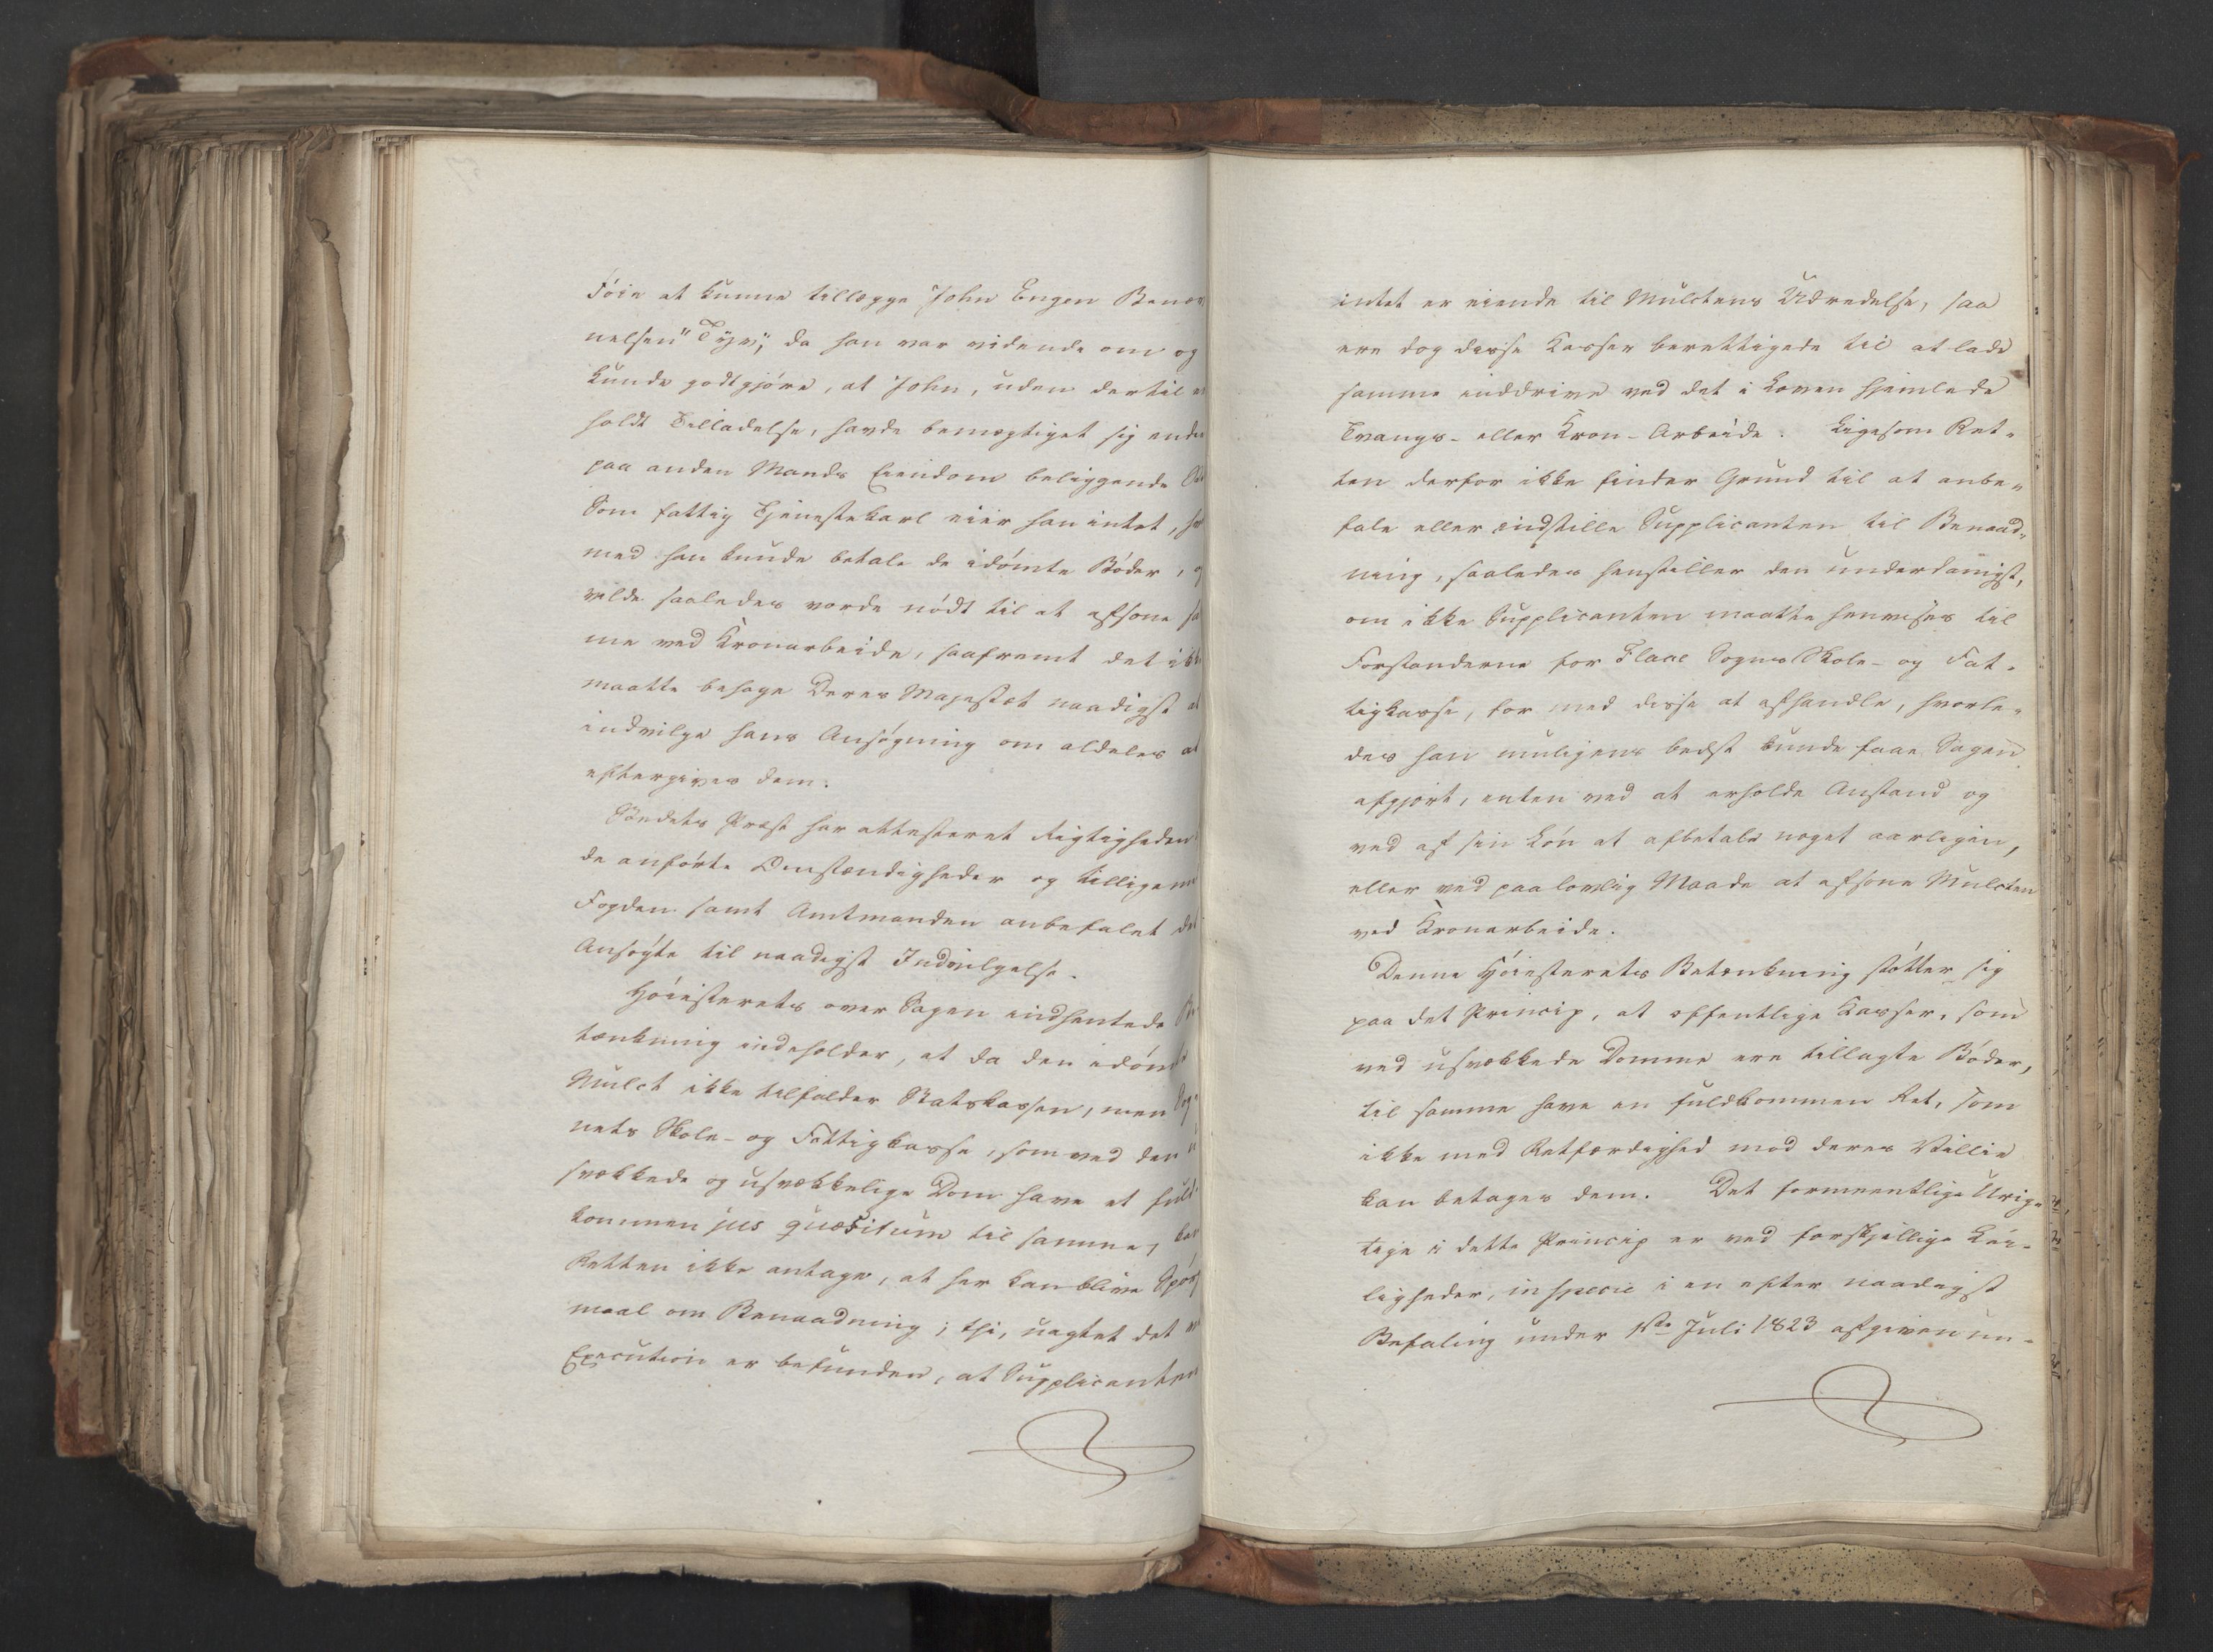 Föie at kunne tillægge John Engen Benæv
nelsen "Tyv", da han var vidende om og
kunde godtgjöre, at John, uden dertil er
holdt Tilladelse, havde bemægtiget sig ender
paa anden Mands Eiendom beliggende
Som fattig Tjenestekarl eier han intet, hvor
med han kunde betale de idömte Böder, og
vilde saaledes vorde nödt til at afsone sa
me ved Kronarbeide, saafremt det ikke
maatte behage Deres Majestæt naadigst at
indvilge hans Ansögning om aldeles at
eftergives dem.
Stedets Præst har attesteret Rigtigheden
de anförte Omstændigheder og tilligemed
Fogden samt Amtmanden anbefalet det
Ansögte til naadigst Indvilgelse.
Höiesterets over Sagen indhentede Be
tænkning indeholder, at da den idömte
Mulct ikke tilfalder Statskassen, men Sog-
nets Skole- og Fattigkasse, som ved den u
svækkede og usvækkelige Dom have et fuld-
kommen jus quæsitum til samme, kan
Retten ikke antage, at her kan blive Spörgs
maal om Benaadning; thi, uagtet det ved
Execution er befunden, at Supplicanten
intet er eiende til Mulctens Udredelse, saa
ere dog disse Kasser berettigede til at lade
samme inddrive ved det i Loven hjemlede
Tvangs- eller Kron-Arbeide. Ligesom Ret-
ten derfor ikke finder Grund til at anbe-
fale eller indstille Supplicanten til Benaad-
ning, saaledes henstiller den underdanigst,
om ikke Supplicanten maatte henvises til
Forstanderne for Flaae Sogns Skole- og Fat-
tigkasse, for med disse at afhandle, hvorle-
des han muligens bedst kunde faae Sagen
afgjort, enten ved at erholde Anstand og
ved af sin Lön at afbetale noget aarligen,
eller ved paa lovlig Maade at afsone Mulcten
ved Kronarbeide.
Denne Höiesterets Betænkning stötter sig
paa det Princip, at offentlige Kasser, som
ved usvækkede Domme ere tillagte Böder,
til samme have en fuldkommen Ret, som
ikke med Retfærdighed mod deres Villie
kan betages dem. Det formeentlige Urig-
tige i dette Princip er ved forskjellige Lei-
ligheder, in specie i en efter naadigst
Befaling under 1ste Juli 1823 afgiven un-